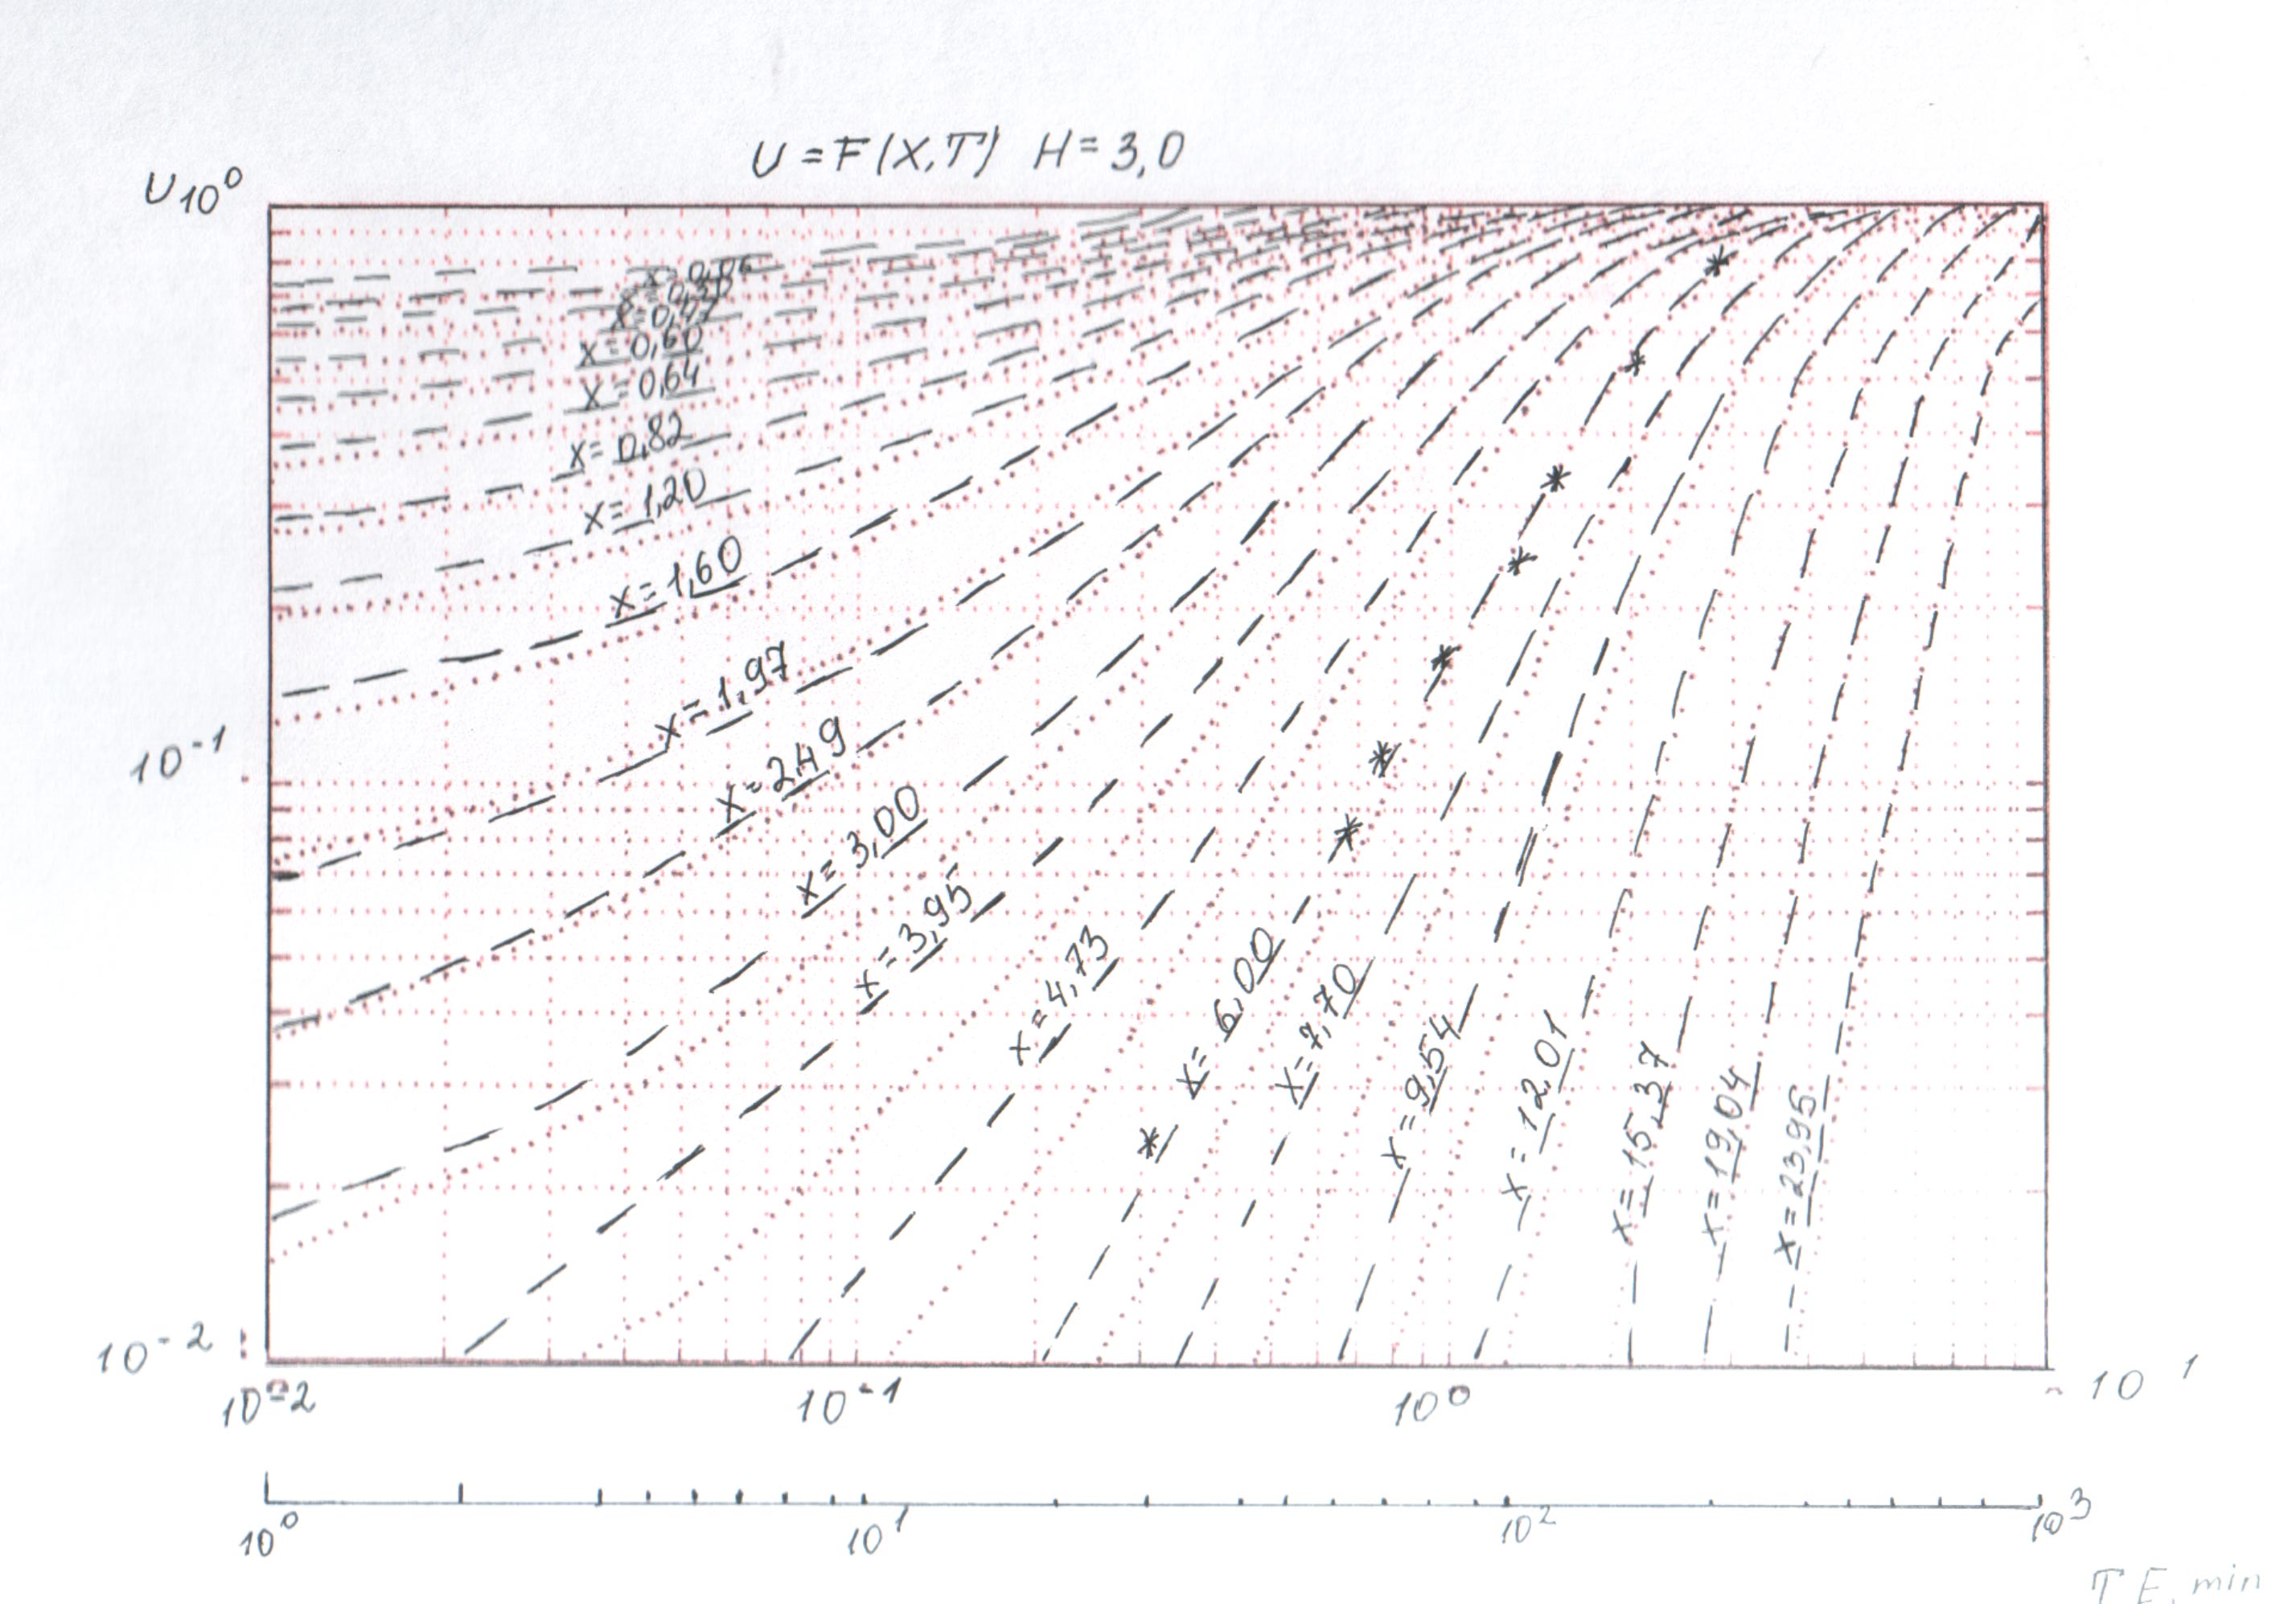 U=F(X,T) H=3,0
U 10⁰
x=0,30
x=0,47
x=0,60
x=0,64
x=0,82
x=1,20
x=1,60
x=1,97
x=2,49
x=3,00
x=3,95
x=4,73
x=6,00
x=7,70
x=9,54
x=12,01
x=15,37
x=19,04
x=23,95
10⁻¹
10⁻²
10⁻² 10⁻¹ 10⁰ 10¹
10⁰ 10¹ 10² 10³
T E, min